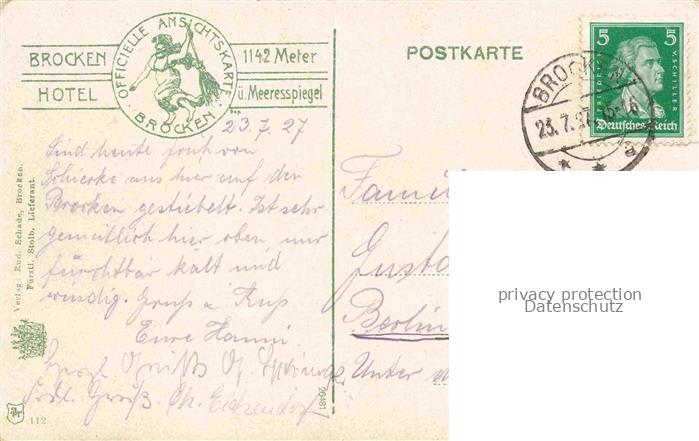 BROCKEN
HOTEL
OFFICIELLE ANSICHTSKARTE
BROCKEN
1142 Meter
ü. Meeresspiegel
POSTKARTE
5 5
FRIEDRICH V. SCHILLER
Deutsches Reich
BROCKEN
23.7.27
a
23.7.27
Sind heute früh von
Schierke aus hier auf den
Brocken gestiebelt. Ist sehr
gemütlich hier oben, nur
furchtbar kalt und
windig. Gruss u Kuss
Eure Hanni.
Herzl Grüße
Frdl. Gruß.
Verlag: Rud. Schade, Brocken.
Fürstl. Stolb. Lieferant.
112
26481
Famil
Gusta
Berlin
Unter
privacy protection
Datenschutz